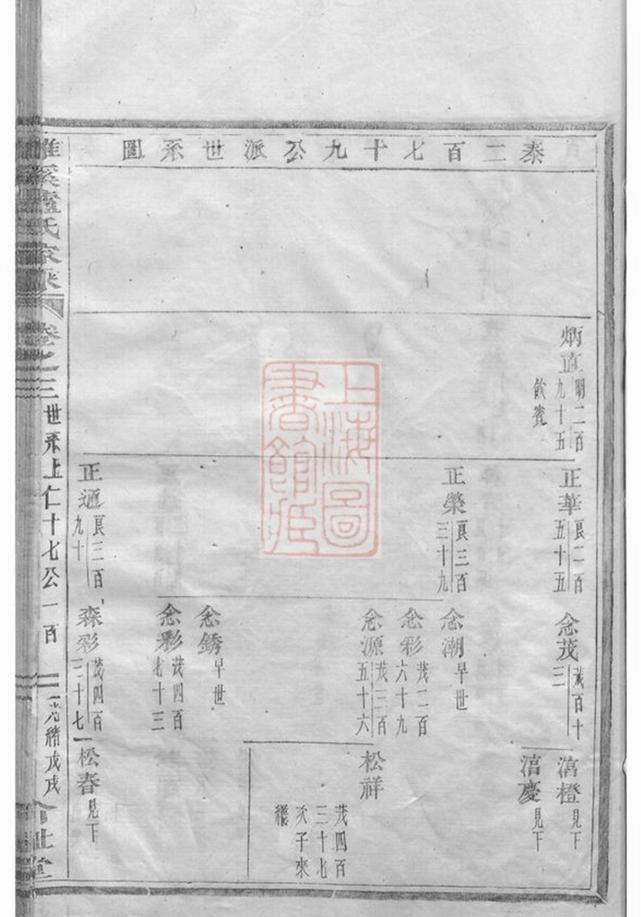 泰二百七十九公派世系圖
炳直 明二百九十五
飲賓
正華 良二百五十五
正榮 良三百三十九
正通 良三百九十
念茂 茂百十三
念潮 早世
念彩 茂二百六十九
念源 茂三百五十六
念銹 早世
念彩 茂四百七十三
森彩 茂四百三十七
㵙橙 見下
㵙慶 見下
松祥
茂四百三十七次子來繼
松春 見下
盧氏家乘
卷之三
世系上仁十七公一百
光緒戊戌
上海圖書館藏